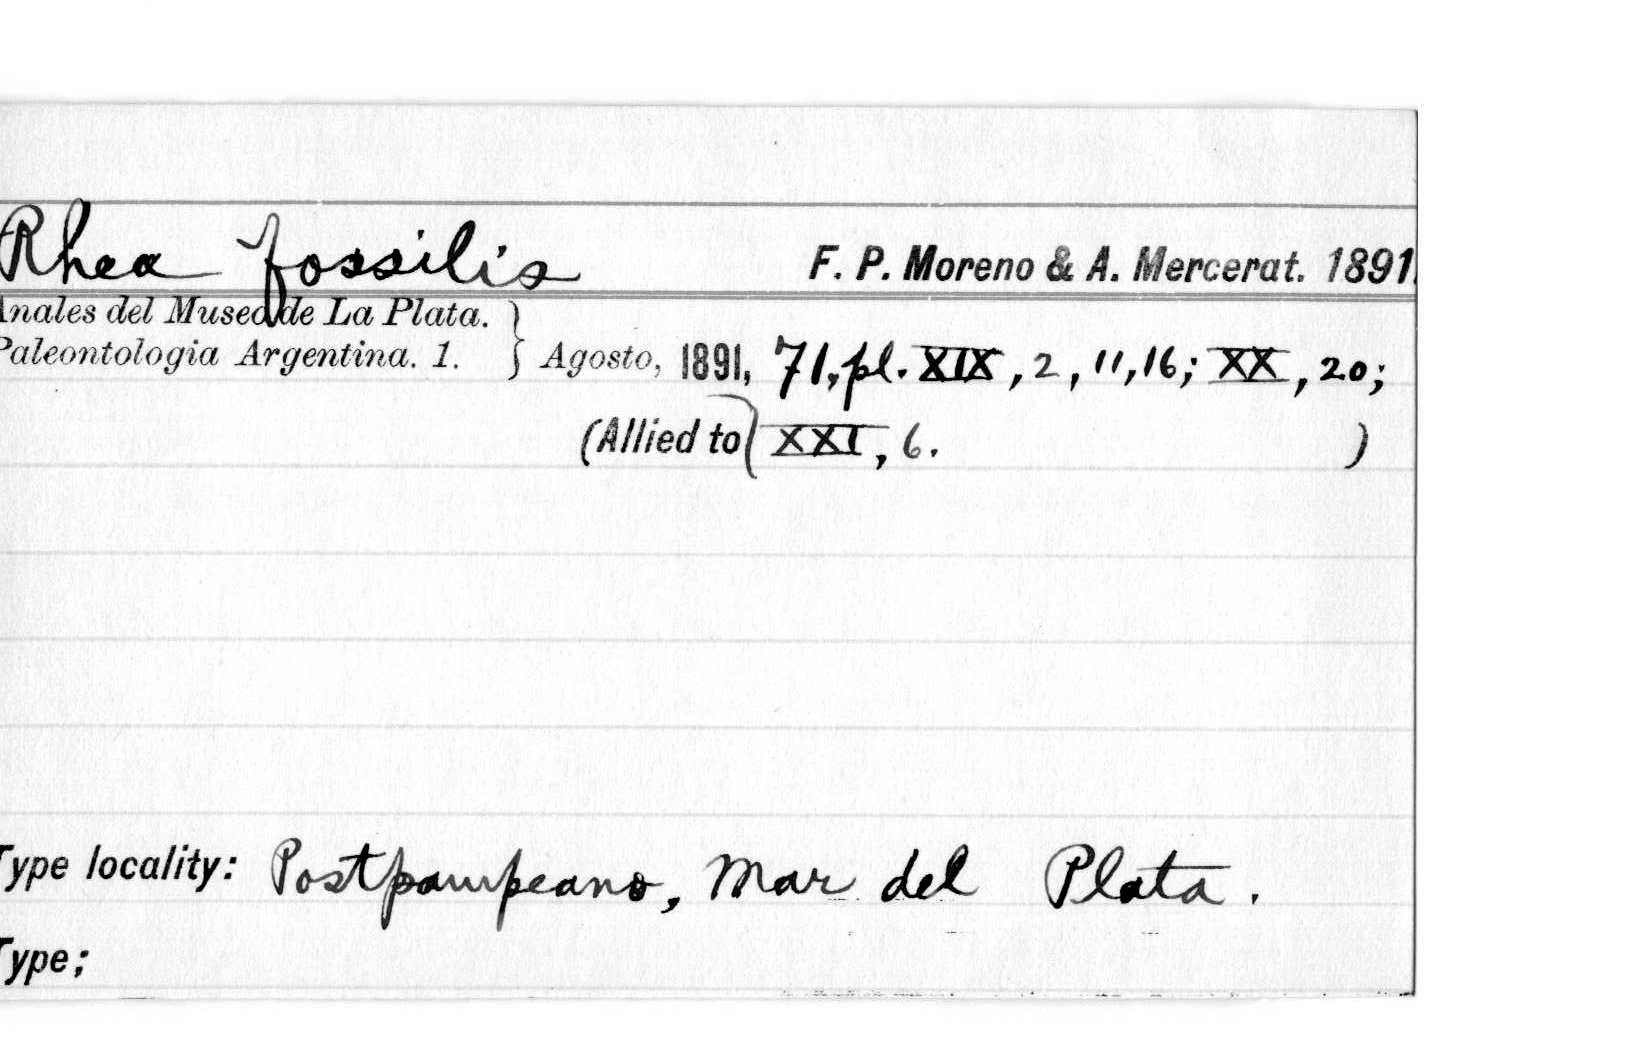 Rhea fossilis F. P. Moreno & A. Mercerat. 1891.
Anales del Museo de La Plata. }
Paleontologia Argentina. 1. } Agosto, 1891, 71, pl. XIX, 2, 11, 16; XX, 20;
(Allied to ( XXI, 6. )
Type locality: Postpampeano, Mar del Plata.
Type;